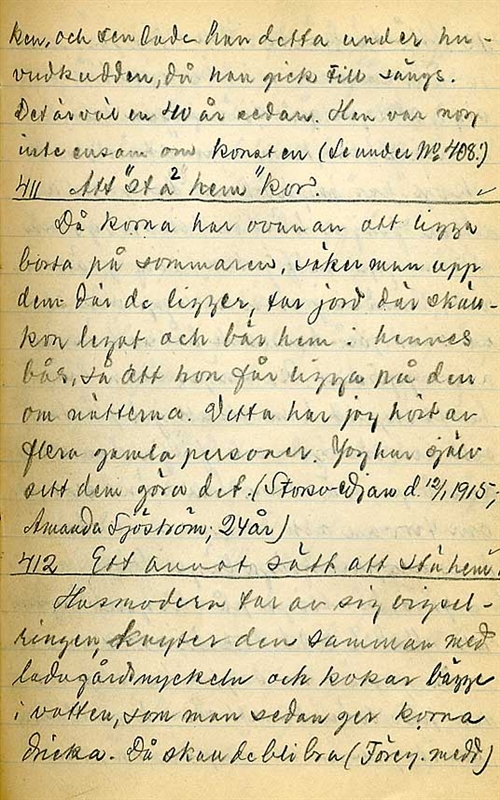 ken, och sen lade han detta under hu-
vudkudden, då han gick till sängs.
Det är väl en 40 år sedan. Han var nog
inte ensam om konsten (Se under № 408.)
411 Att "stå² hem" kor.
Då korna har ovanan att ligga
borta på sommaren, söker man upp
dem där de ligger, tar jord där skäll-
kon legat och bär hem i hennes
bås, så att hon får ligga på den
om nätterna. Detta har jag hört av
flera gamla personer. Jag har själv
sett dem göra det. (Storsv-edjan d. 12/1 1915,
Amanda Sjöström, 24 år)
412 Ett annat sätt att stå hem.
Husmodern tar av sig vigsel-
ringen, knyter den samman med
ladugårdsnyckeln och kokar bägge
i vatten, som man sedan ger korna
dricka. Då skau de bli bra (Föreg. medd.)